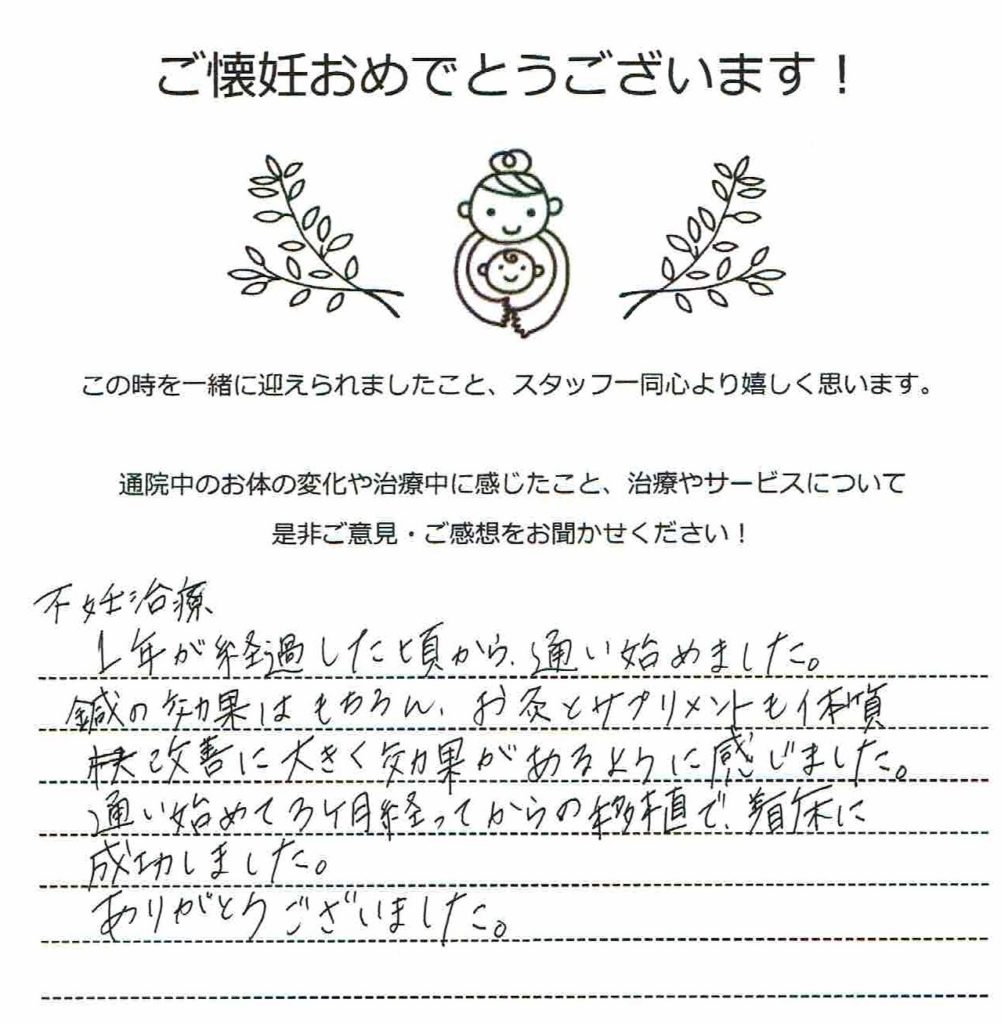 ご懐妊おめでとうございます！
この時を一緒に迎えられましたこと、スタッフ一同心より嬉しく思います。
通院中のお体の変化や治療中に感じたこと、治療やサービスについて
是非ご意見・ご感想をお聞かせください！
不妊治療
1年が経過した頃から、通い始めました。
鍼の効果はもちろん、お灸とサプリメントも体質
改善に大きく効果があるように感じました。
通い始めて3ヶ月経ってからの移植で、着床に
成功しました。
ありがとうございました。